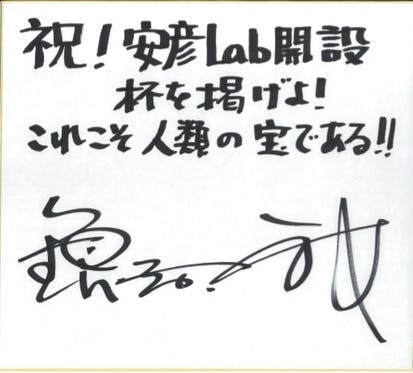 祝！安彦Lab開設
杯を掲げよ！
これこそ人類の宝である!!